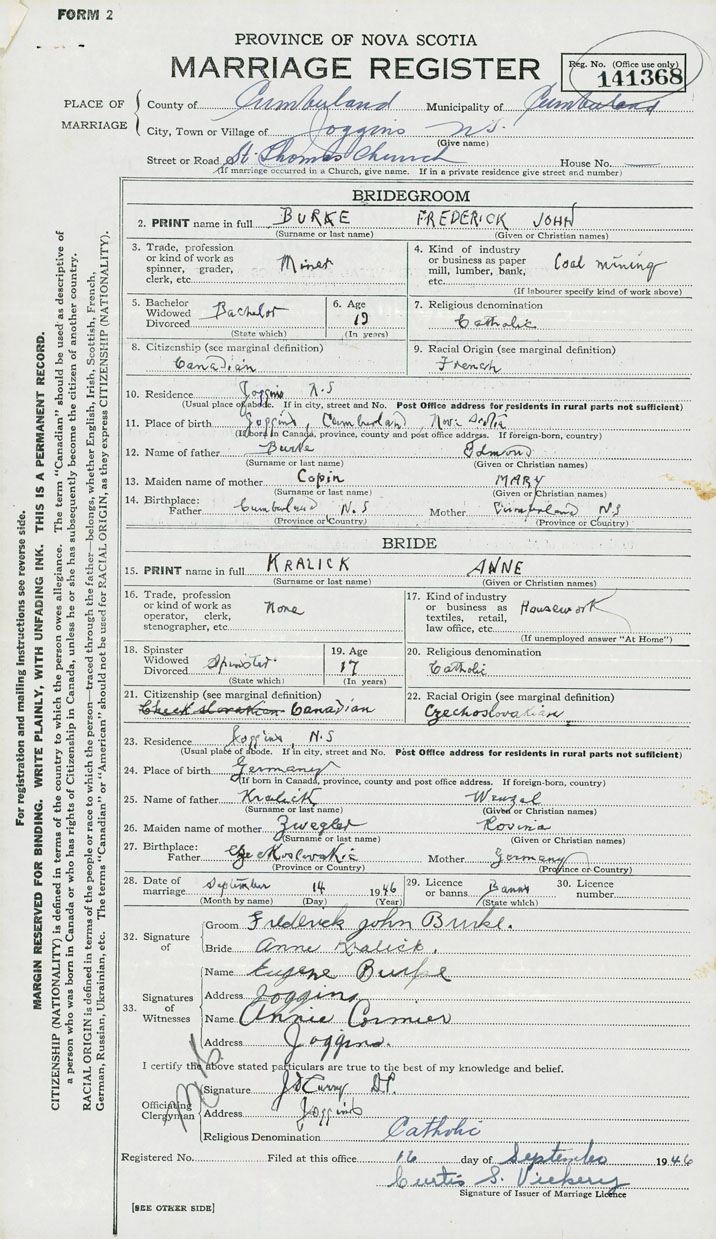 FORM 2
PROVINCE OF NOVA SCOTIA
MARRIAGE REGISTER
Reg. No. (Office use only)
141368
PLACE OF MARRIAGE
County of Cumberland Municipality of Cumberland
City, Town or Village of Joggins N.S.
(Give name)
Street or Road St. Thomas Church House No.
(If marriage occurred in a Church, give name. If in a private residence give street and number)
BRIDEGROOM
2. PRINT name in full BURKE FREDERICK JOHN
(Surname or last name) (Given or Christian names)
3. Trade, profession or kind of work as spinner, grader, clerk, etc. Miner
4. Kind of industry or business as paper mill, lumber, bank, etc. Coal mining
(If labourer specify kind of work above)
5. Bachelor Widowed Divorced Bachelor
(State which)
6. Age 19
(In years)
7. Religious denomination
Catholic
8. Citizenship (see marginal definition)
Canadian
9. Racial Origin (see marginal definition)
French
10. Residence Joggins N.S
(Usual place of abode. If in city, street and No. Post Office address for residents in rural parts not sufficient)
11. Place of birth Joggins, Cumberland, Nova Scotia
(If born in Canada, province, county and post office address. If foreign-born, country)
12. Name of father Burke Edmond
(Surname or last name) (Given or Christian names)
13. Maiden name of mother Copin MARY
(Surname or last name) (Given or Christian names)
14. Birthplace: Father Cumberland N.S Mother Cumberland N.S
(Province or Country) (Province or Country)
BRIDE
15. PRINT name in full KRALICK ANNE
(Surname or last name) (Given or Christian names)
16. Trade, profession or kind of work as operator, clerk, stenographer, etc. None
17. Kind of industry or business as textiles, retail, law office, etc. Housework
(If unemployed answer "At Home")
18. Spinster Widowed Divorced Spinster
(State which)
19. Age 17
(In years)
20. Religious denomination
Catholic
21. Citizenship (see marginal definition)
Canadian
22. Racial Origin (see marginal definition)
Czechoslovakian
23. Residence Joggins N.S
(Usual place of abode. If in city, street and No. Post Office address for residents in rural parts not sufficient)
24. Place of birth Germany
(If born in Canada, province, county and post office address. If foreign-born, country)
25. Name of father Kralick Wenzel
(Surname or last name) (Given or Christian names)
26. Maiden name of mother Zwegler Rovina
(Surname or last name) (Given or Christian names)
27. Birthplace: Father Czeckoslovakia Mother Germany
(Province or Country) (Province or Country)
28. Date of marriage September 14 1946
(Month by name) (Day) (Year)
29. Licence or banns Banns
(State which)
30. Licence number
32. Signature of
Groom Frederick John Burke.
Bride Anne Kralick.
33. Signatures of Witnesses
Name Eugene Burke
Address Joggins
Name Annie Cormier
Address Joggins.
I certify the above stated particulars are true to the best of my knowledge and belief.
Officiating Clergyman
Signature J D Curry
Address Joggins
Religious Denomination Catholic
Registered No. Filed at this office 16 day of September 1946
Curtis S. Vickery
Signature of Issuer of Marriage Licence
[SEE OTHER SIDE]
For registration and mailing instructions see reverse side.
MARGIN RESERVED FOR BINDING. WRITE PLAINLY, WITH UNFADING INK. THIS IS A PERMANENT RECORD.
CITIZENSHIP (NATIONALITY) is defined in terms of the country to which the person owes allegiance. The term "Canadian" should be used as descriptive of
a person who was born in Canada or who has rights of Citizenship in Canada, unless he or she has subsequently become the citizen of another country.
RACIAL ORIGIN is defined in terms of the people or race to which the person—traced through the father—belongs, whether English, Irish, Scottish, French,
German, Russian, Ukrainian, etc. The terms "Canadian" or "American" should not be used for RACIAL ORIGIN, as they express CITIZENSHIP (NATIONALITY).